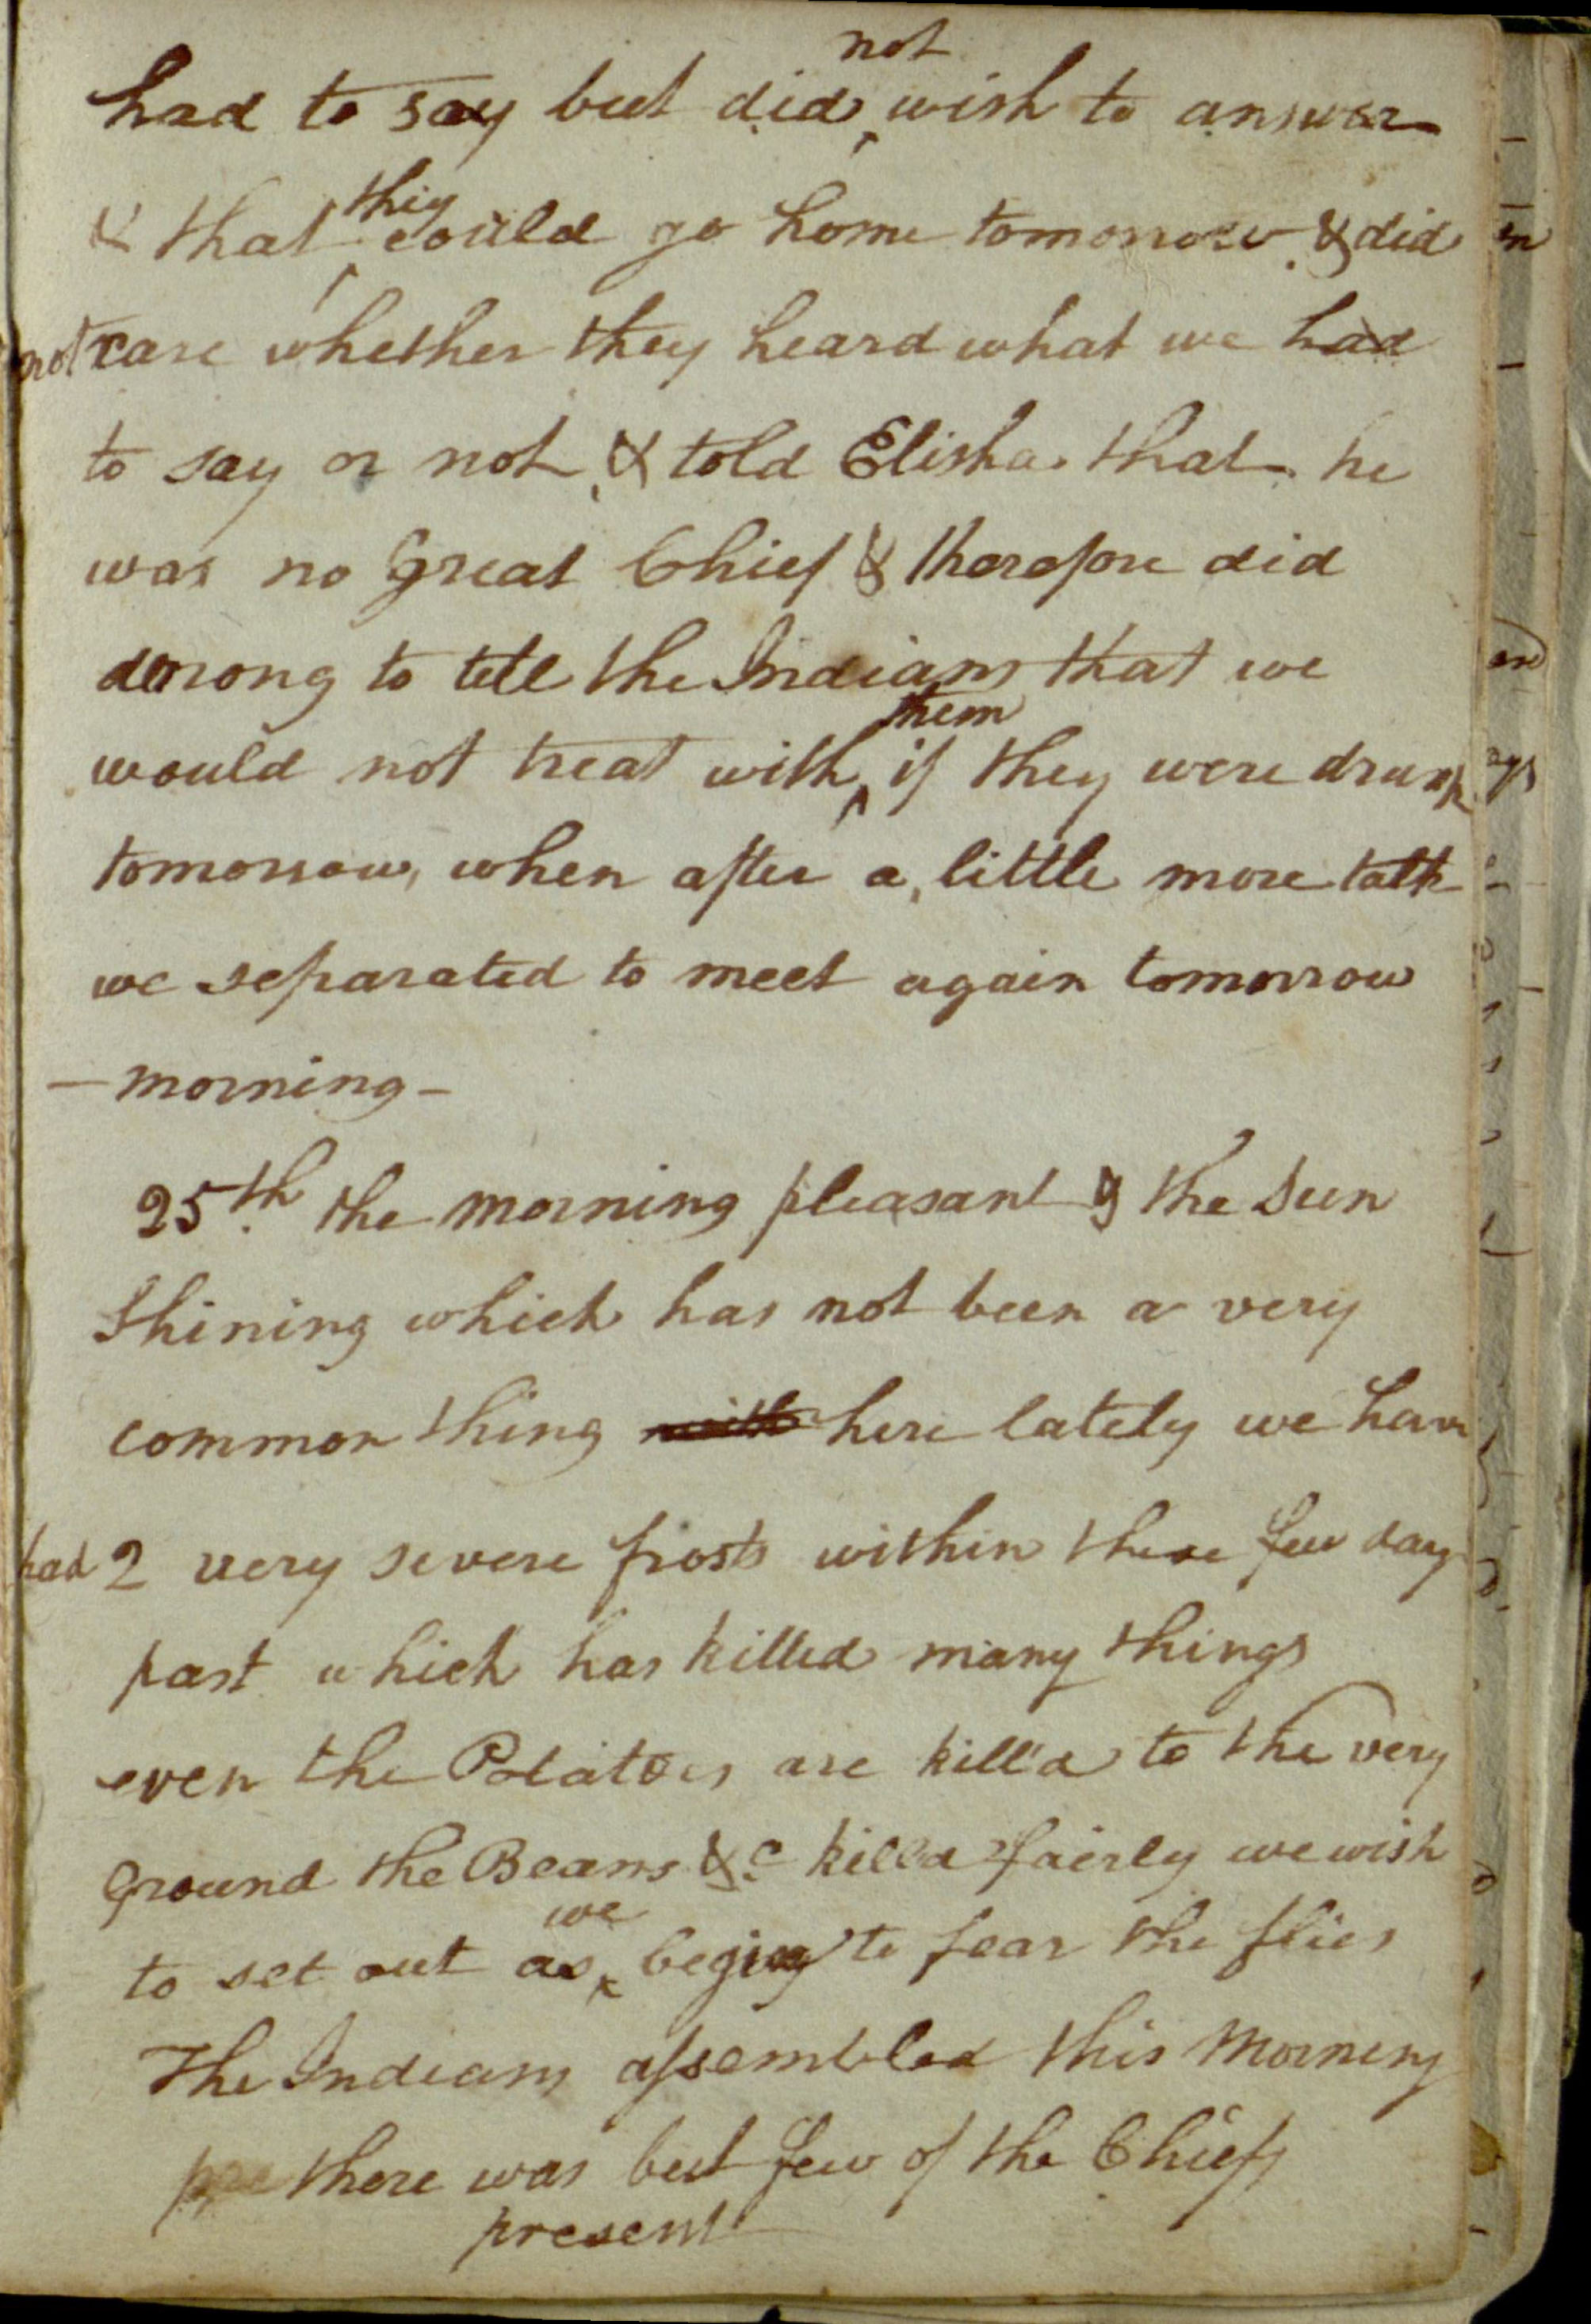 had to say but did not wish to answer
& that they could go home tomorrow & did
not care whether they heard what we had
to say or not, & told Elisha that he
was no Great Chief & therefore did
wrong to tell the Indians that we
would not treat with them if they were drunk
tomorrow, when after a little more talk
we separated to meet again tomorrow
— morning —
25th the morning pleasant & the Sun
Shining which has not been a very
common thing with here lately we have
had 2 very severe frosts within these few days
past which has killed many things
even the Potatoes are kill'd to the very
Ground the Beans &c kill'd fairly we wish
to set out as we begin to fear the flies
The Indians assembled this Morning
pre there was but few of the Chiefs
present